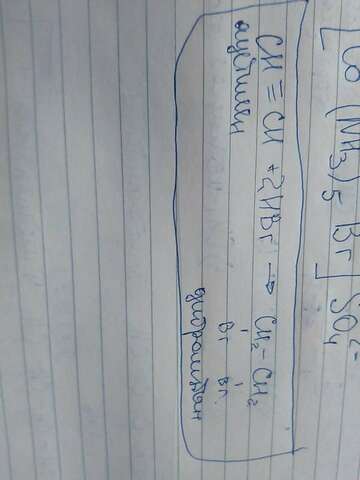 [Co (NH3)5 Br] SO4 2-
CH ≡ CH + 2HBr → CH2 - CH2
Br Br
ацетилен
дибромэтан